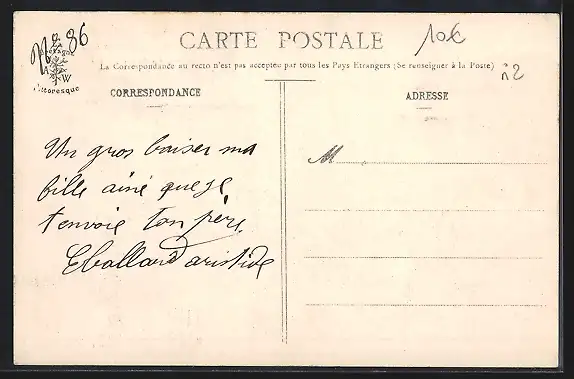 N° 86
Bretagne
Pittoresque
W
CARTE POSTALE
10€
La Correspondance au recto n'est pas acceptée par tous les Pays Etrangers (Se renseigner à la Poste)
R2
CORRESPONDANCE
ADRESSE
Un gros baiser ma
fille ainé que je
t'envoie ton père
Eballard aristide
M